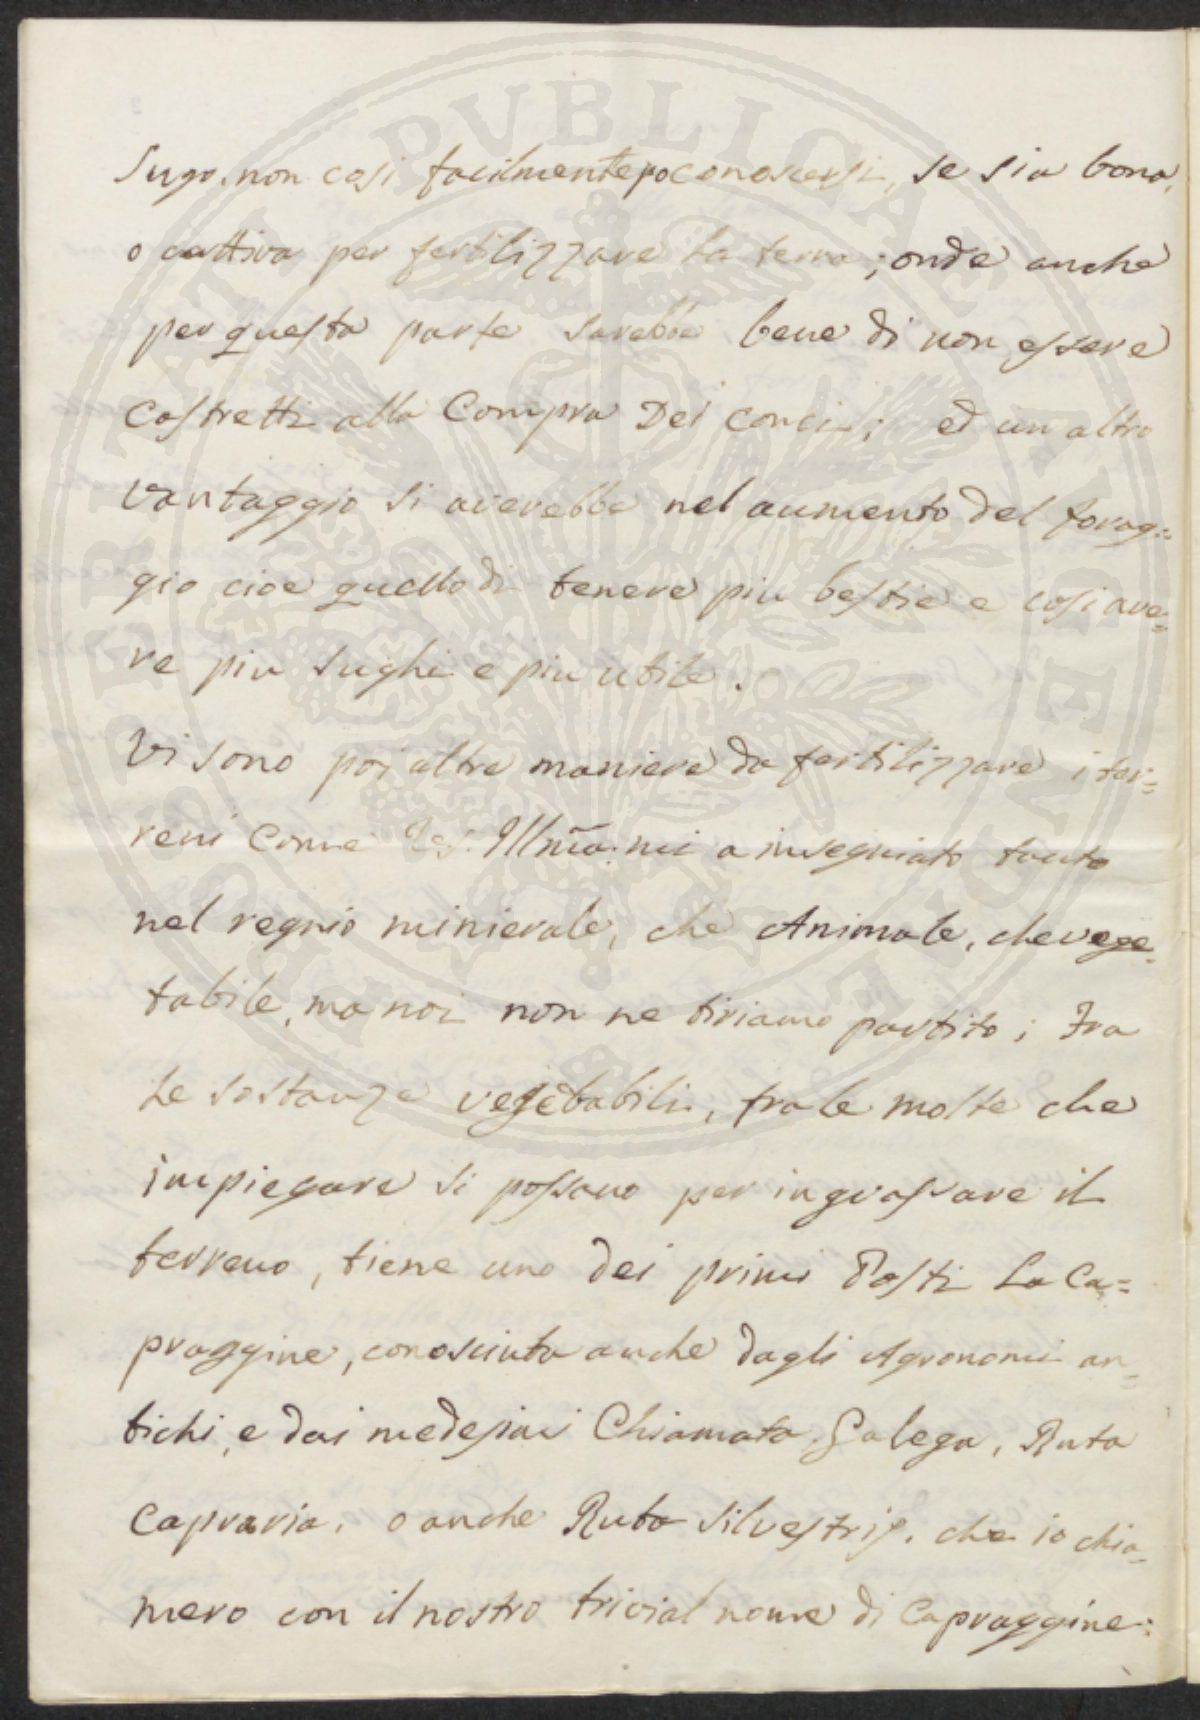 Sugo. non così facilmente po conoscersi, se sia bona,
o cattiva per fertilizzare la terra; onde anche
per questa parte sarebbe bene di non essere
costretti alla Compra Dei conci; ed un altro
vantaggio si averebbe nel aumento del forag=
gio cioe quello di tenere piu bestie e così ave=
re piu sughi e piu utile.
Vi sono poi altre maniere da fertilizzare i ter=
reni come Illma. mi a insegniato tanto
nel regnio minierale, che Animale, che vege=
tabile, ma noi non ne tiriamo partito; Fra
Le sostanze vegetabili, fra le molte che
impiegare si possano per ingrassare il
terreno, tiene uno dei primi Posti La Ca=
praggine, conosciuta anche dagli Agronomi an=
tichi, e dai medesimi Chiamata Galega, Ruta
Capraria, o anche Ruta Silvestris, che io chia=
mero con il nostro trivial nome di Capraggine:
PUBLICAE